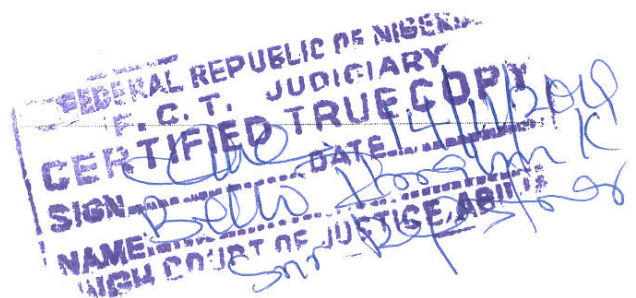 FEDERAL REPUBLIC OF NIGERIA
F. C. T. JUDICIARY
CERTIFIED TRUE COPY
SIGN DATE
NAME: Bello K
HIGH COURT OF JUSTICE ABUJA
Snr